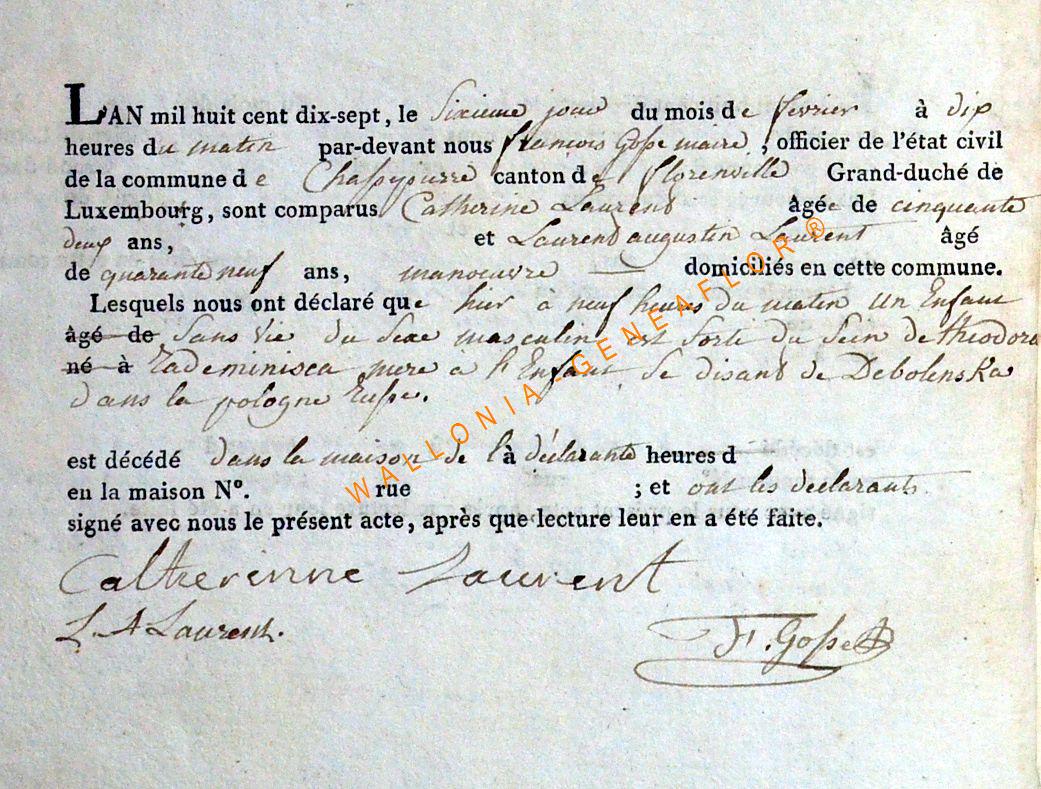 L'AN mil huit cent dix-sept, le Sixieme jour du mois de fevrier à dix
heures du matin par-devant nous françois Gosse maire, officier de l'état civil
de la commune de Chassepierre canton de florenville Grand-duché de
Luxembourg, sont comparus Catherine Laurent âgée de cinquante
deux ans, et Laurent augustin Laurent âgé
de quarante neuf ans, manoeuvre domiciliés en cette commune.
Lesquels nous ont déclaré que hier à neuf heures du matin un Enfant
âgé de Sans vie du Sexe masculin est Sorti du Sein de theodora
né à mere à l'Enfant, Se disant de Debolenska
dans la pologne Russe.
est décédé dans la maison de l à déclarante heures d
en la maison N°. rue ; et ont les declarants
signé avec nous le présent acte, après que lecture leur en a été faite.
Catherinne Laurent
L. A Laurent.
F. Gosse
WALLONIA GENEAFLOR ®